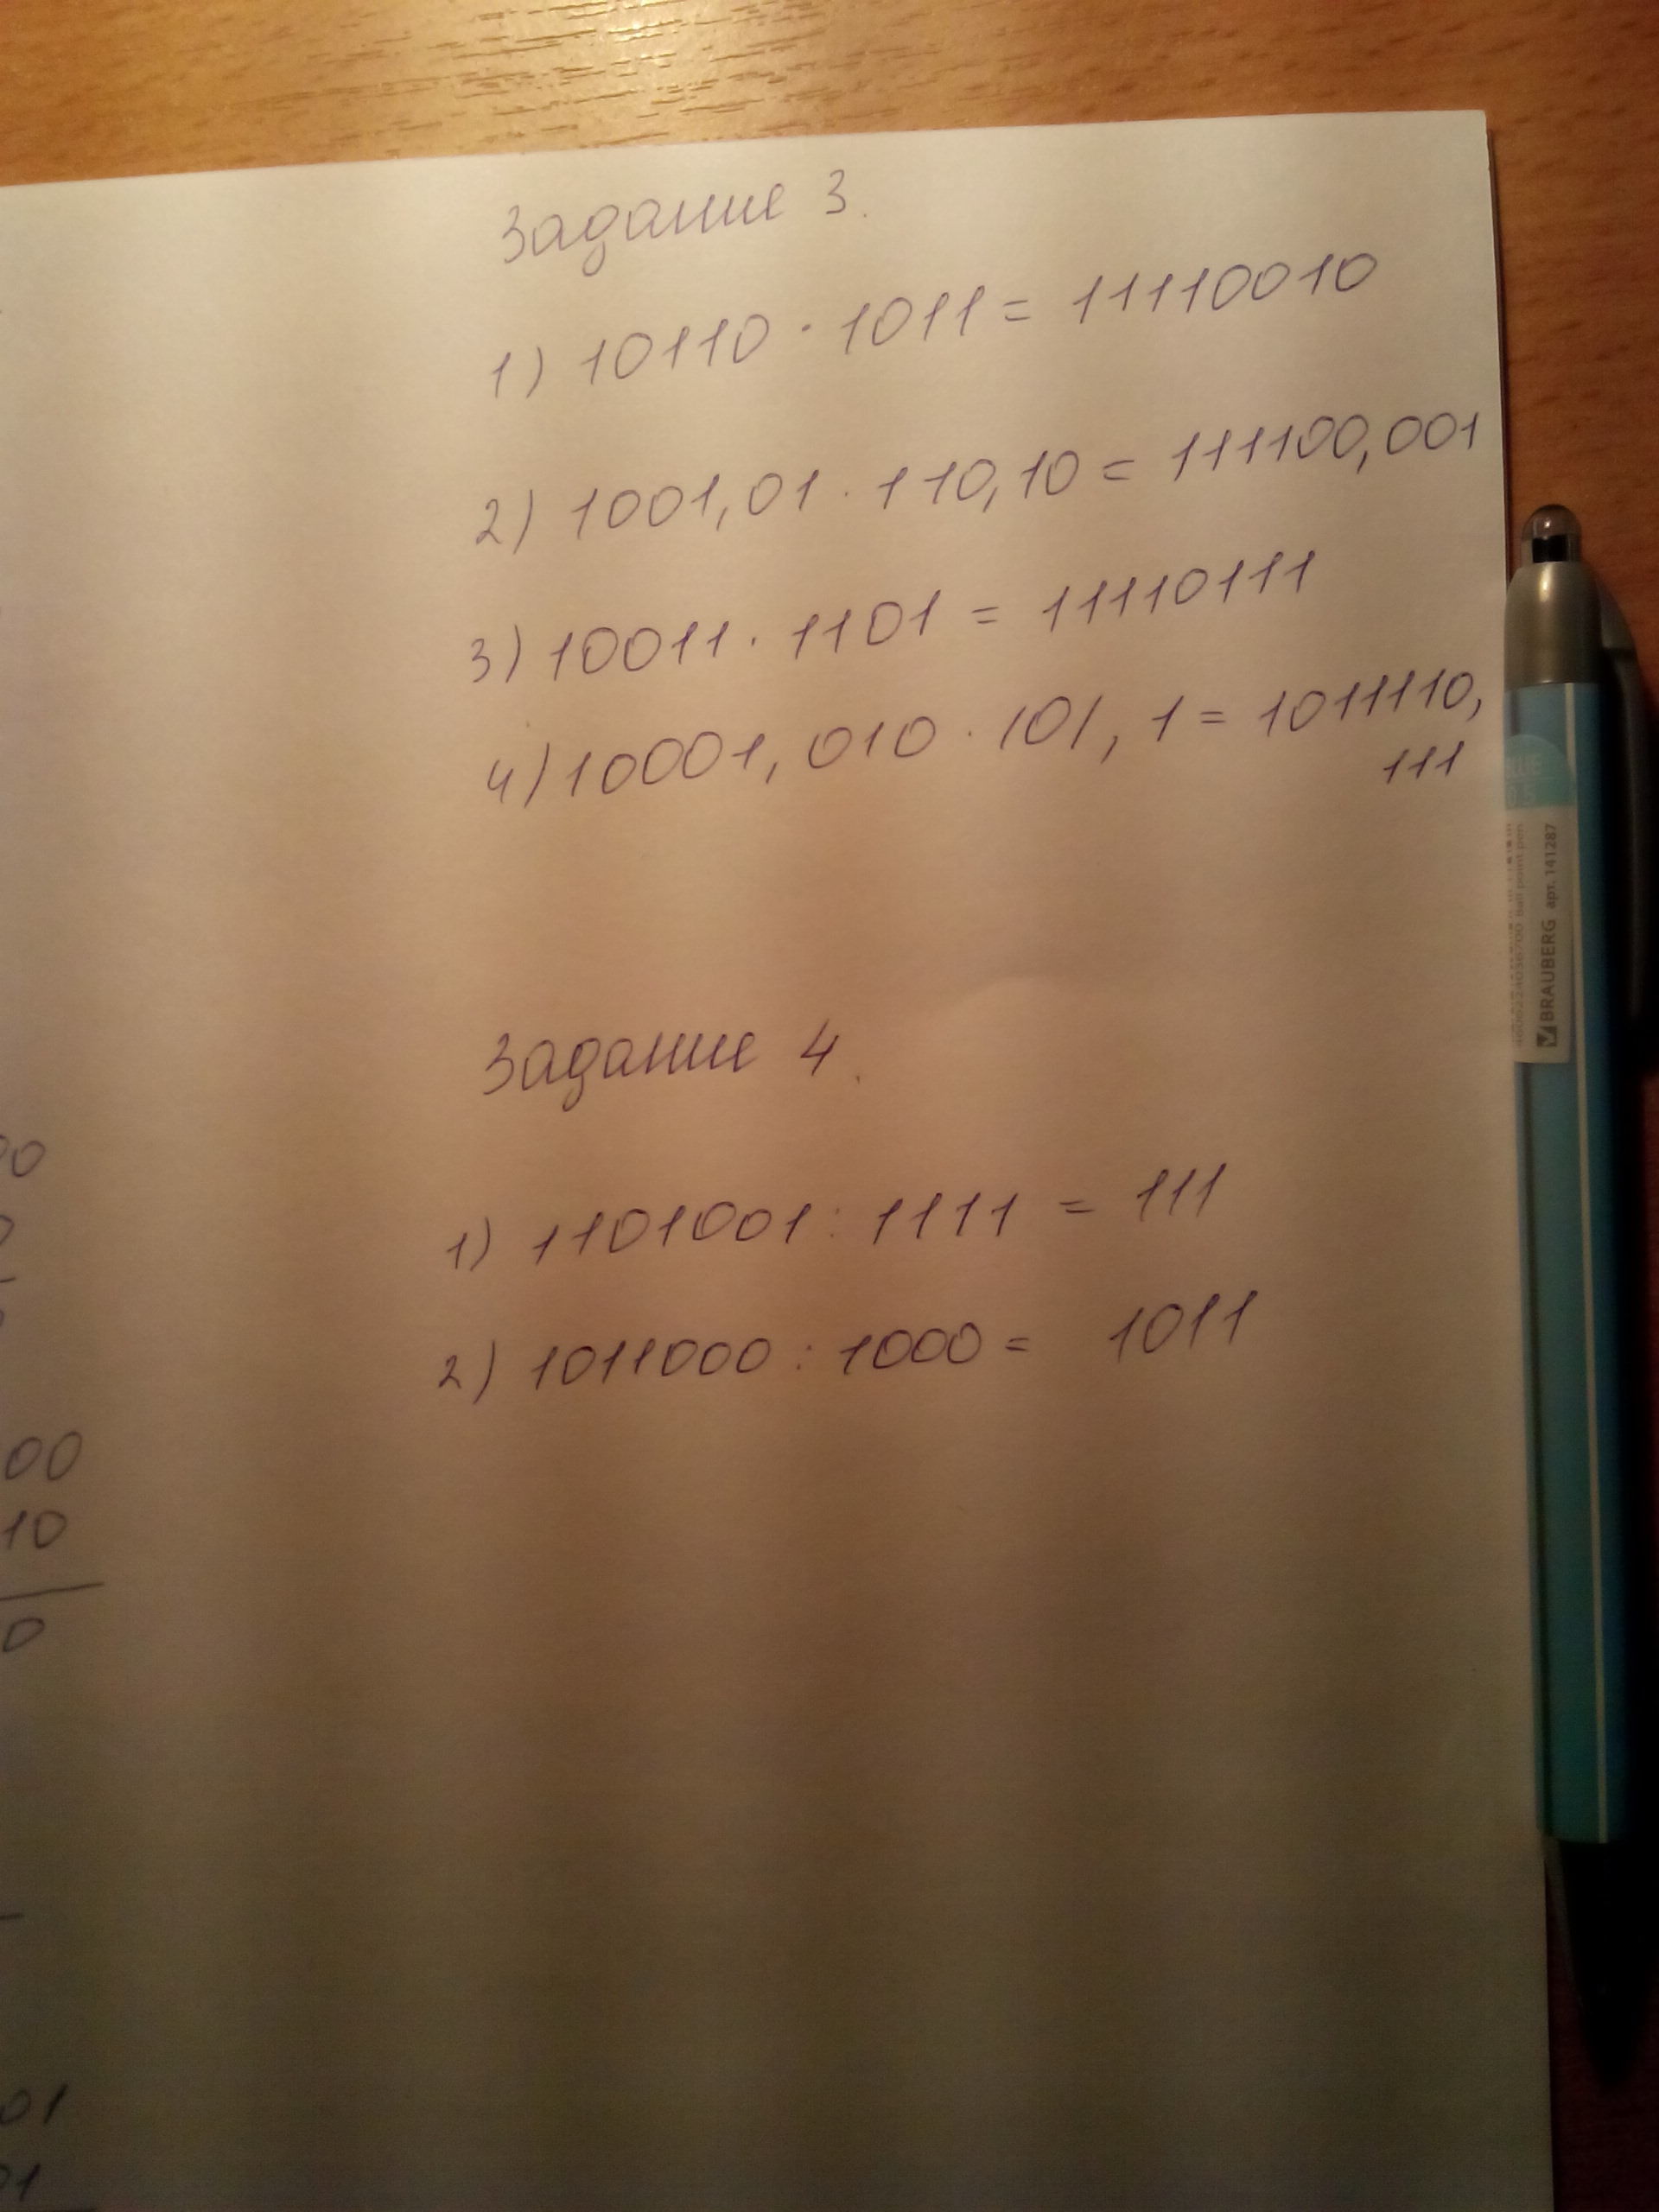 Задание 3.
1) 10110 · 1011 = 11110010
2) 1001,01 · 110,10 = 111100,001
3) 10011 · 1101 = 11110111
4) 10001,010 · 101,1 = 1011110,
111
Задание 4.
1) 1101001 : 1111 = 111
2) 1011000 : 1000 = 1011
00
10
0
01
BRAUBERG арт. 141287
ball point pen